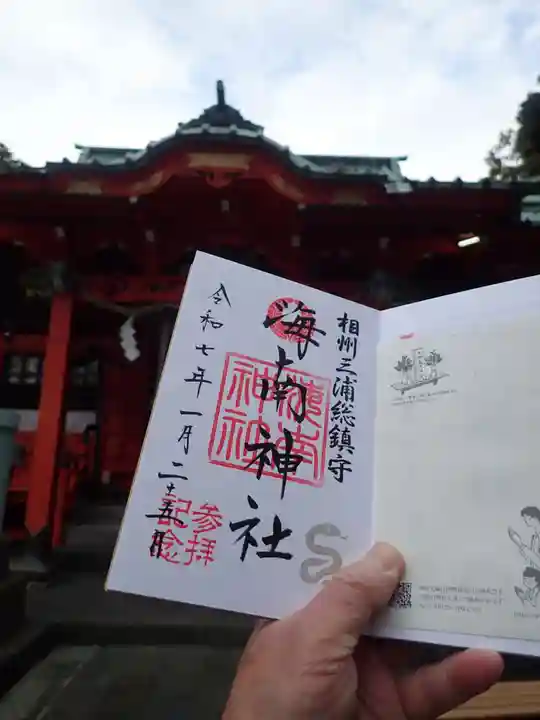 相州三浦総鎮守
海南神社
海南
神社
参拝
記念
令和七年一月二十五日